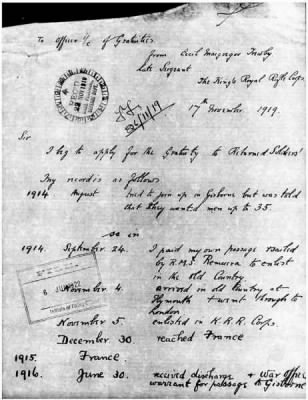 To Officer i/c of Gratuities
from Cecil Macgregor
Late Sergeant
The King's Royal Rifle Corps.
17th November 1919.
26/11/19
Sir
I beg to apply for the Gratuity to Returned Soldiers'
my record is as follows
1914 August tried to join up in Gisborne but was told
that they wanted men up to 35.
so in
1914. September 24. I paid my own passage & sailed
by R.M.S. Remuera to enlist
in the Old Country
November 4. arrived in old Country at
Plymouth & went through to
London
November 5. enlisted in K.R.R. Corps.
December 30 reached France
1915. France
1916. June 30. received discharge & War Office
warrant for passage to Gisborne